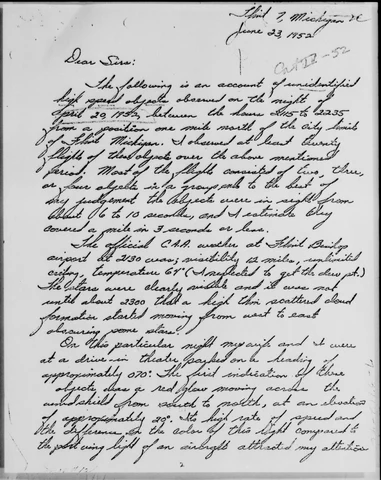 Flint 7, Michigan
June 23, 1952
Oct II - 52
Dear Sirs:
The following is an account of unidentified
high speed objects observed on the night of
April 20, 1952, between the hours 2115 to 2235
from a position one mile north of the city limits
of Flint Michigan. I observed at least twenty
flights of these objects over the above mentioned
period. Most of the flights consisted of two, three,
or four objects in a group and to the best of
my judgement the objects were in sight from
about 6 to 10 seconds, and I estimate they
covered a mile in 3 seconds or less.
The official C.A.A. weather at Flint Bishop
airport at 2130 was; visibility 12 miles, unlimited
ceiling, temperature 64° (I neglected to get the dew pt.)
The stars were clearly visible and it was not
until about 2300 that a high thin scattered cloud
formation started moving from west to east
obscuring some stars.
On this particular night my wife and I were
at a drive-in theatre parked on a heading of
approximately 070°. The first indication of these
objects was a red glow moving across the
windshield from south to north, at an elevation
of approximately 20°. The high rate of speed and
the difference in the color of this light compared to
the position light of an aircraft attracted my attention
2